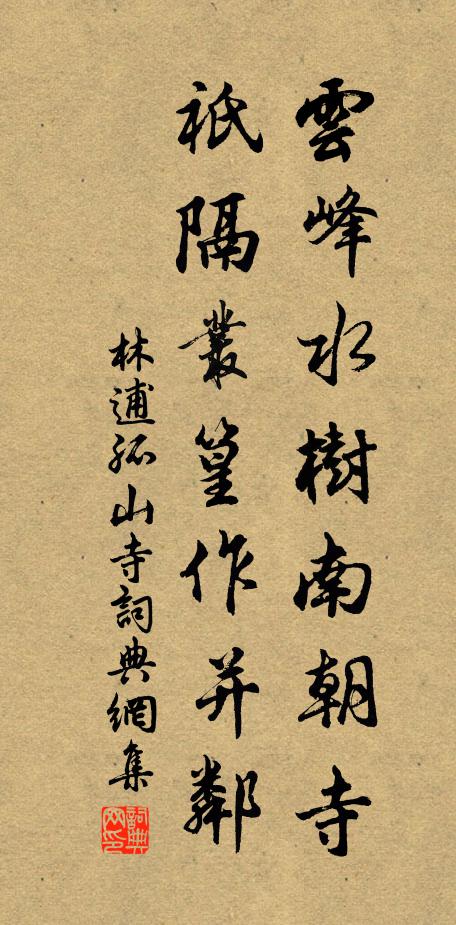 雲峰水樹南朝寺
祇隔叢篁作并鄰
林逋孤山寺詞典網集
詞典網印